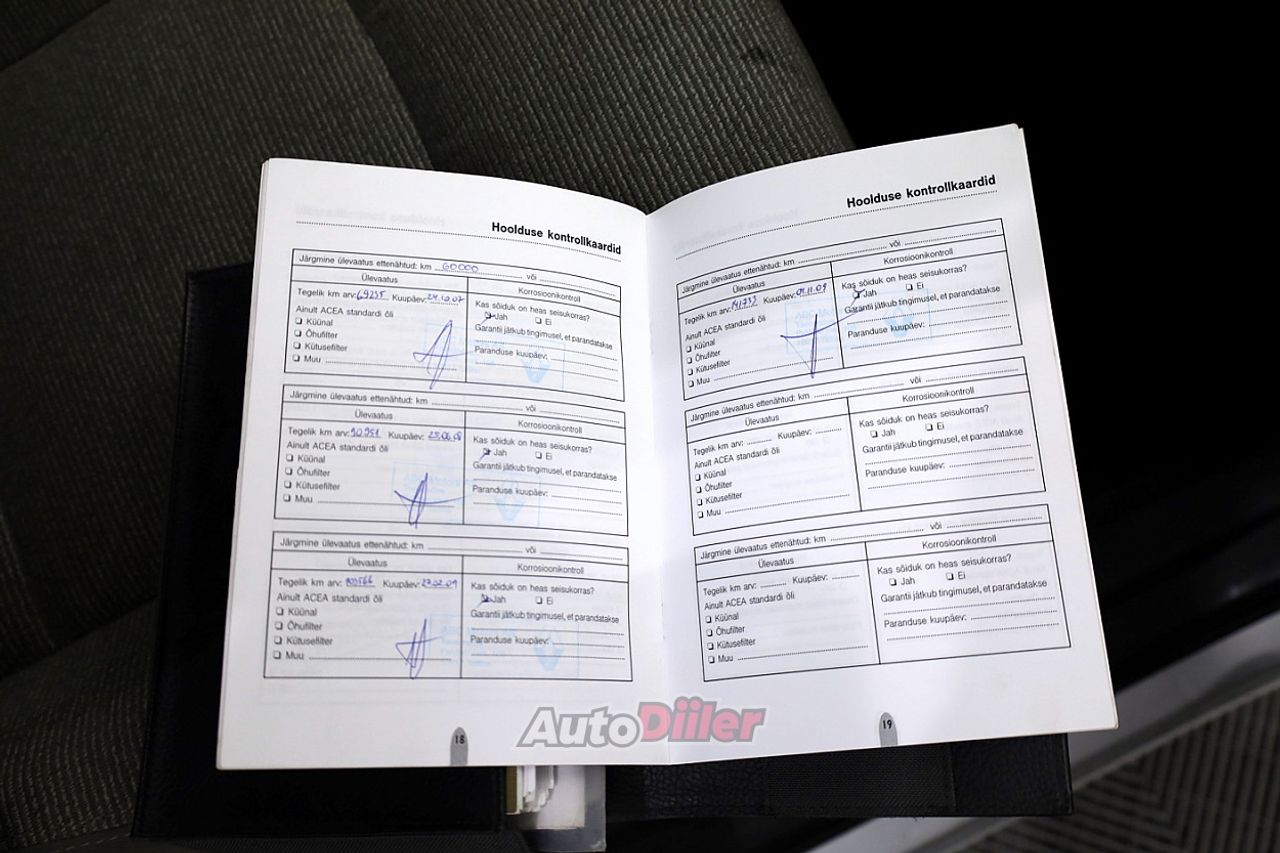 Hoolduse kontrollkaardid
Järgmine ülevaatus ettenähtud: km 60000 või
Ülevaatus
Korrosioonikontroll
Tegelik km arv: 69255 Kuupäev: 24.10.07
Ainult ACEA standardi õli
Küünal
Õhufilter
Kütusefilter
Muu
Kas sõiduk on heas seisukorras?
Jah Ei
Garantii jätkub tingimusel, et parandatakse
Paranduse kuupäev:
Järgmine ülevaatus ettenähtud: km või
Ülevaatus
Korrosioonikontroll
Tegelik km arv: 90951 Kuupäev: 25.06.08
Ainult ACEA standardi õli
Küünal
Õhufilter
Kütusefilter
Muu
Kas sõiduk on heas seisukorras?
Jah Ei
Garantii jätkub tingimusel, et parandatakse
Paranduse kuupäev:
Järgmine ülevaatus ettenähtud: km või
Ülevaatus
Korrosioonikontroll
Tegelik km arv: Kuupäev: 27.02.09
Ainult ACEA standardi õli
Küünal
Õhufilter
Kütusefilter
Muu
Kas sõiduk on heas seisukorras?
Jah Ei
Garantii jätkub tingimusel, et parandatakse
Paranduse kuupäev:
18
Hoolduse kontrollkaardid
Järgmine ülevaatus ettenähtud: km või
Ülevaatus
Korrosioonikontroll
Tegelik km arv: 141733 Kuupäev:
Ainult ACEA standardi õli
Küünal
Õhufilter
Kütusefilter
Muu
Kas sõiduk on heas seisukorras?
Jah Ei
Garantii jätkub tingimusel, et parandatakse
Paranduse kuupäev:
Järgmine ülevaatus ettenähtud: km või
Ülevaatus
Korrosioonikontroll
Tegelik km arv: Kuupäev:
Ainult ACEA standardi õli
Küünal
Õhufilter
Kütusefilter
Muu
Kas sõiduk on heas seisukorras?
Jah Ei
Garantii jätkub tingimusel, et parandatakse
Paranduse kuupäev:
Järgmine ülevaatus ettenähtud: km või
Ülevaatus
Korrosioonikontroll
Tegelik km arv: Kuupäev:
Ainult ACEA standardi õli
Küünal
Õhufilter
Kütusefilter
Muu
Kas sõiduk on heas seisukorras?
Jah Ei
Garantii jätkub tingimusel, et parandatakse
Paranduse kuupäev:
19
AutoDiiler